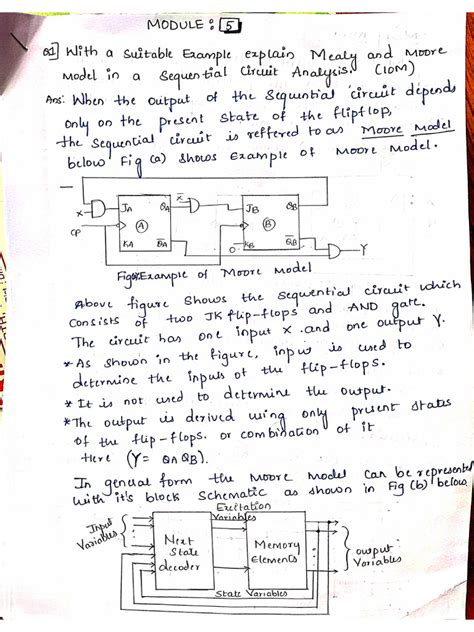 MODULE : 5
Q1] With a Suitable Example explain Mealy and Moore
Model in a Sequential Circuit Analysis. (10M)
Ans: When the output of the Sequential circuit depends
only on the present state of the flipflop,
the Sequential circuit is reffered to as Moore Model
below Fig (a) Shows Example of Moore Model.
X
X̄
JA
QA
JB
QB
A
B
CP
KA
Q̄A
0
KB
Q̄B
Y
Example of Moore Model
Above figure Shows the Sequential circuit which
consists of two JK flip-flops and AND gate.
The circuit has one input X and one output Y.
* As Shown in the figure, input is used to
determine the inputs of the flip-flops.
* It is not used to determine the output.
* The output is derived using only present states
of the flip-flops. or combination of it
Here (Y= QA QB).
In general form the Moore Model Can be represented
with it's block Schematic as shown in Fig (b) below
Excitation
Variables
Input
Variables
Next
State
decoder
Memory
Elements
output
Variables
State Variables